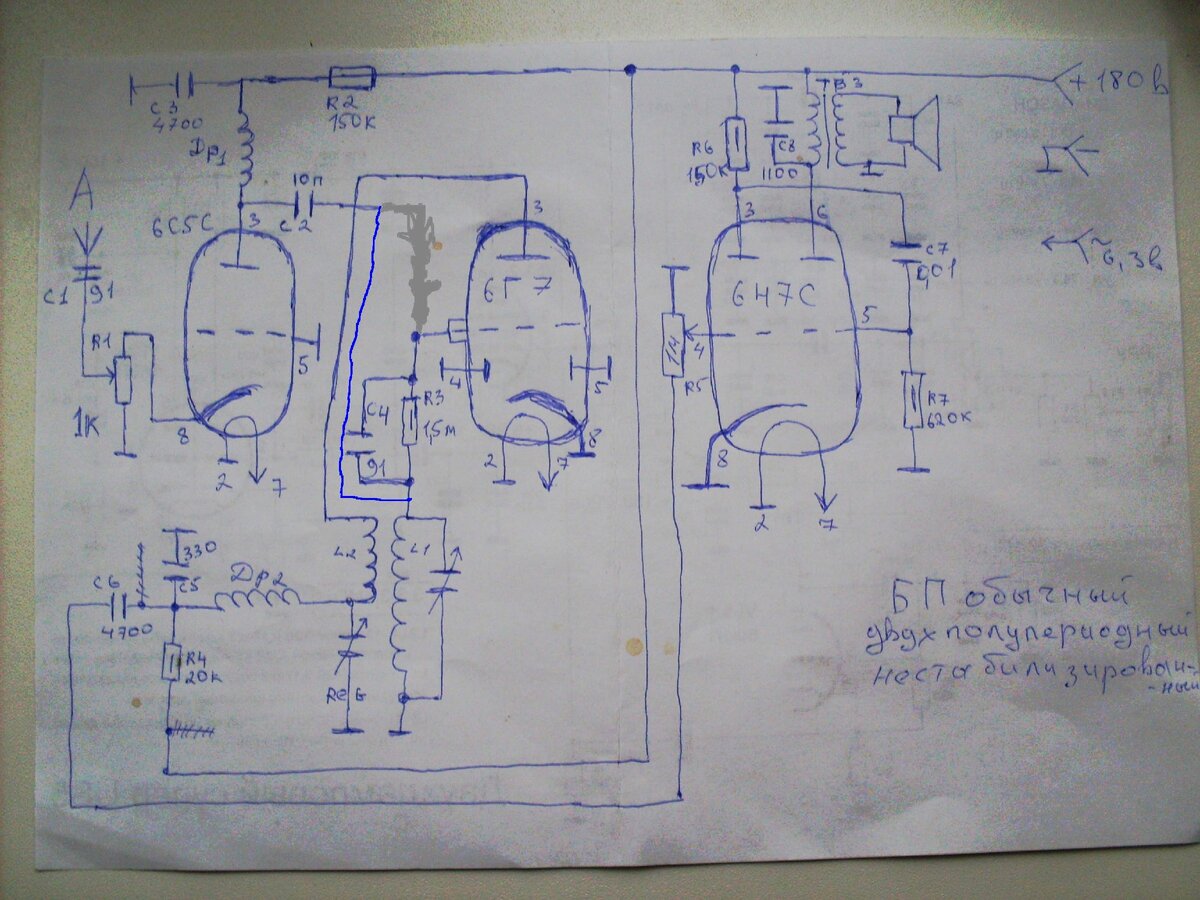 C3
4700
R2
150К
+180в
Др1
10п
C2
А
6С5С
3
C1
91
R1
1К
8
2
7
5
3
6Г7
4
5
C4
91
R3
1,5м
2
7
8
R6
150К
C8
1100
ТВЗ
3
6
C7
0,01
~6,3в
6Н7С
4
5
1М
R5
R7
620К
8
2
7
330
C5
C6
4700
Др2
L2
L1
R4
20К
БП обычный
двухполупериодный
нестабилизирован-
-ный